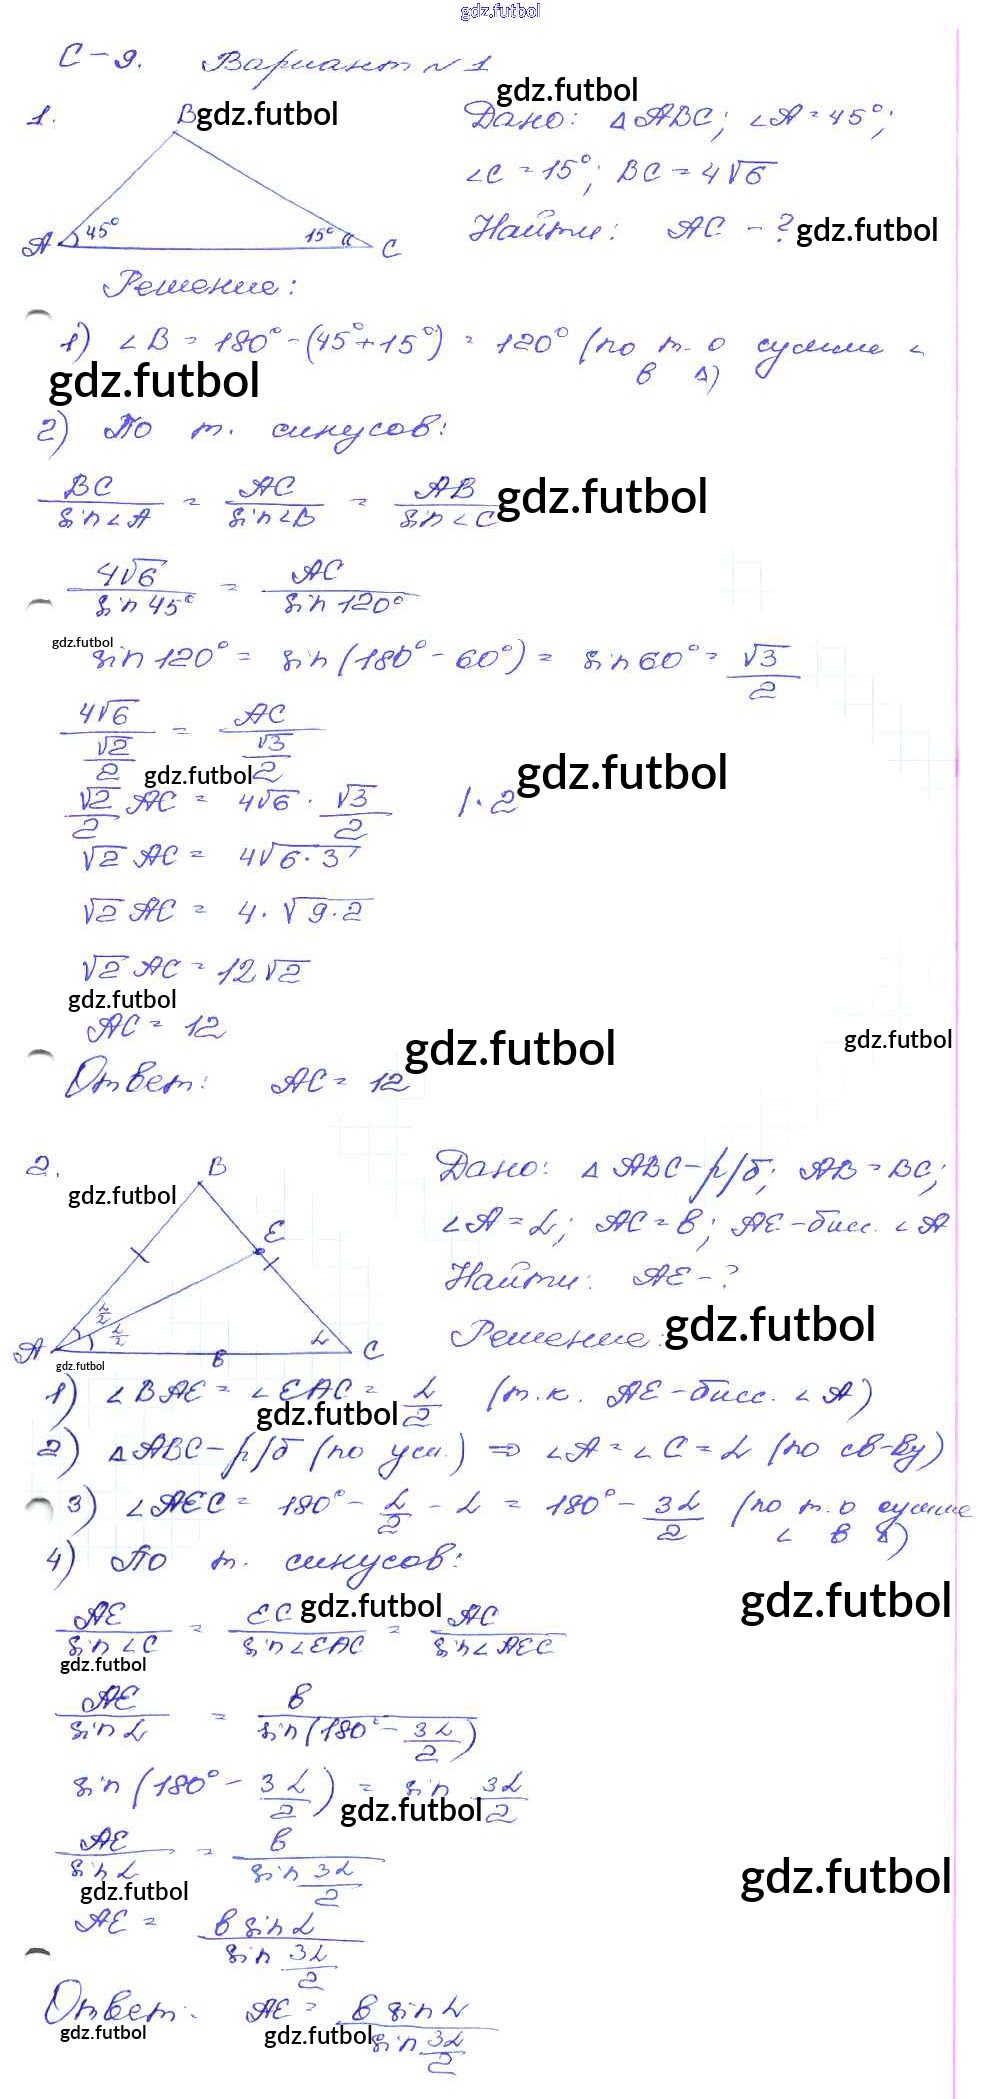 gdz.futbol
С-9. Вариант №1
1.
B gdz.futbol
A 45° 15° C
gdz.futbol
Дано: △ABC; ∠A = 45°;
∠C = 15°; BC = 4√6
Найти: AC - ? gdz.futbol
Решение:
1) ∠B = 180° - (45° + 15°) = 120° (по т. о сумме ∠
в △)
gdz.futbol
2) По т. синусов:
BC/sin∠A = AC/sin∠B = AB/sin∠C gdz.futbol
4√6/sin 45° = AC/sin 120°
gdz.futbol
sin 120° = sin(180° - 60°) = sin 60° = √3/2
4√6/(√2/2) = AC/(√3/2)
gdz.futbol gdz.futbol
√2/2 AC = 4√6 · √3/2 | · 2
√2 AC = 4√(6·3)
√2 AC = 4 · √(9·2)
√2 AC = 12√2
gdz.futbol
AC = 12
gdz.futbol gdz.futbol
Ответ: AC = 12
2.
B
gdz.futbol
E
α/2
α/2
A в α C
gdz.futbol
Дано: △ABC - р/б; AB = BC;
∠A = α; AC = в; AE - бисс. ∠A
Найти: AE - ?
Решение: gdz.futbol
1) ∠BAE = ∠EAC = α/2 (т.к. AE - бисс. ∠A)
gdz.futbol
2) △ABC - р/б (по усл.) ⇒ ∠A = ∠C = α (по св-ву)
3) ∠AEC = 180° - α/2 - α = 180° - 3α/2 (по т. о сумме
∠ в △)
4) По т. синусов:
gdz.futbol
AE/sin∠C = EC/sin∠EAC = AC/sin∠AEC
gdz.futbol
gdz.futbol
AE/sin α = в/sin(180° - 3α/2)
sin(180° - 3α/2) = sin 3α/2
gdz.futbol
AE/sin α = в/sin 3α/2
gdz.futbol
gdz.futbol
AE = в sin α/sin 3α/2
Ответ: AE = в sin α/sin 3α/2
gdz.futbol gdz.futbol